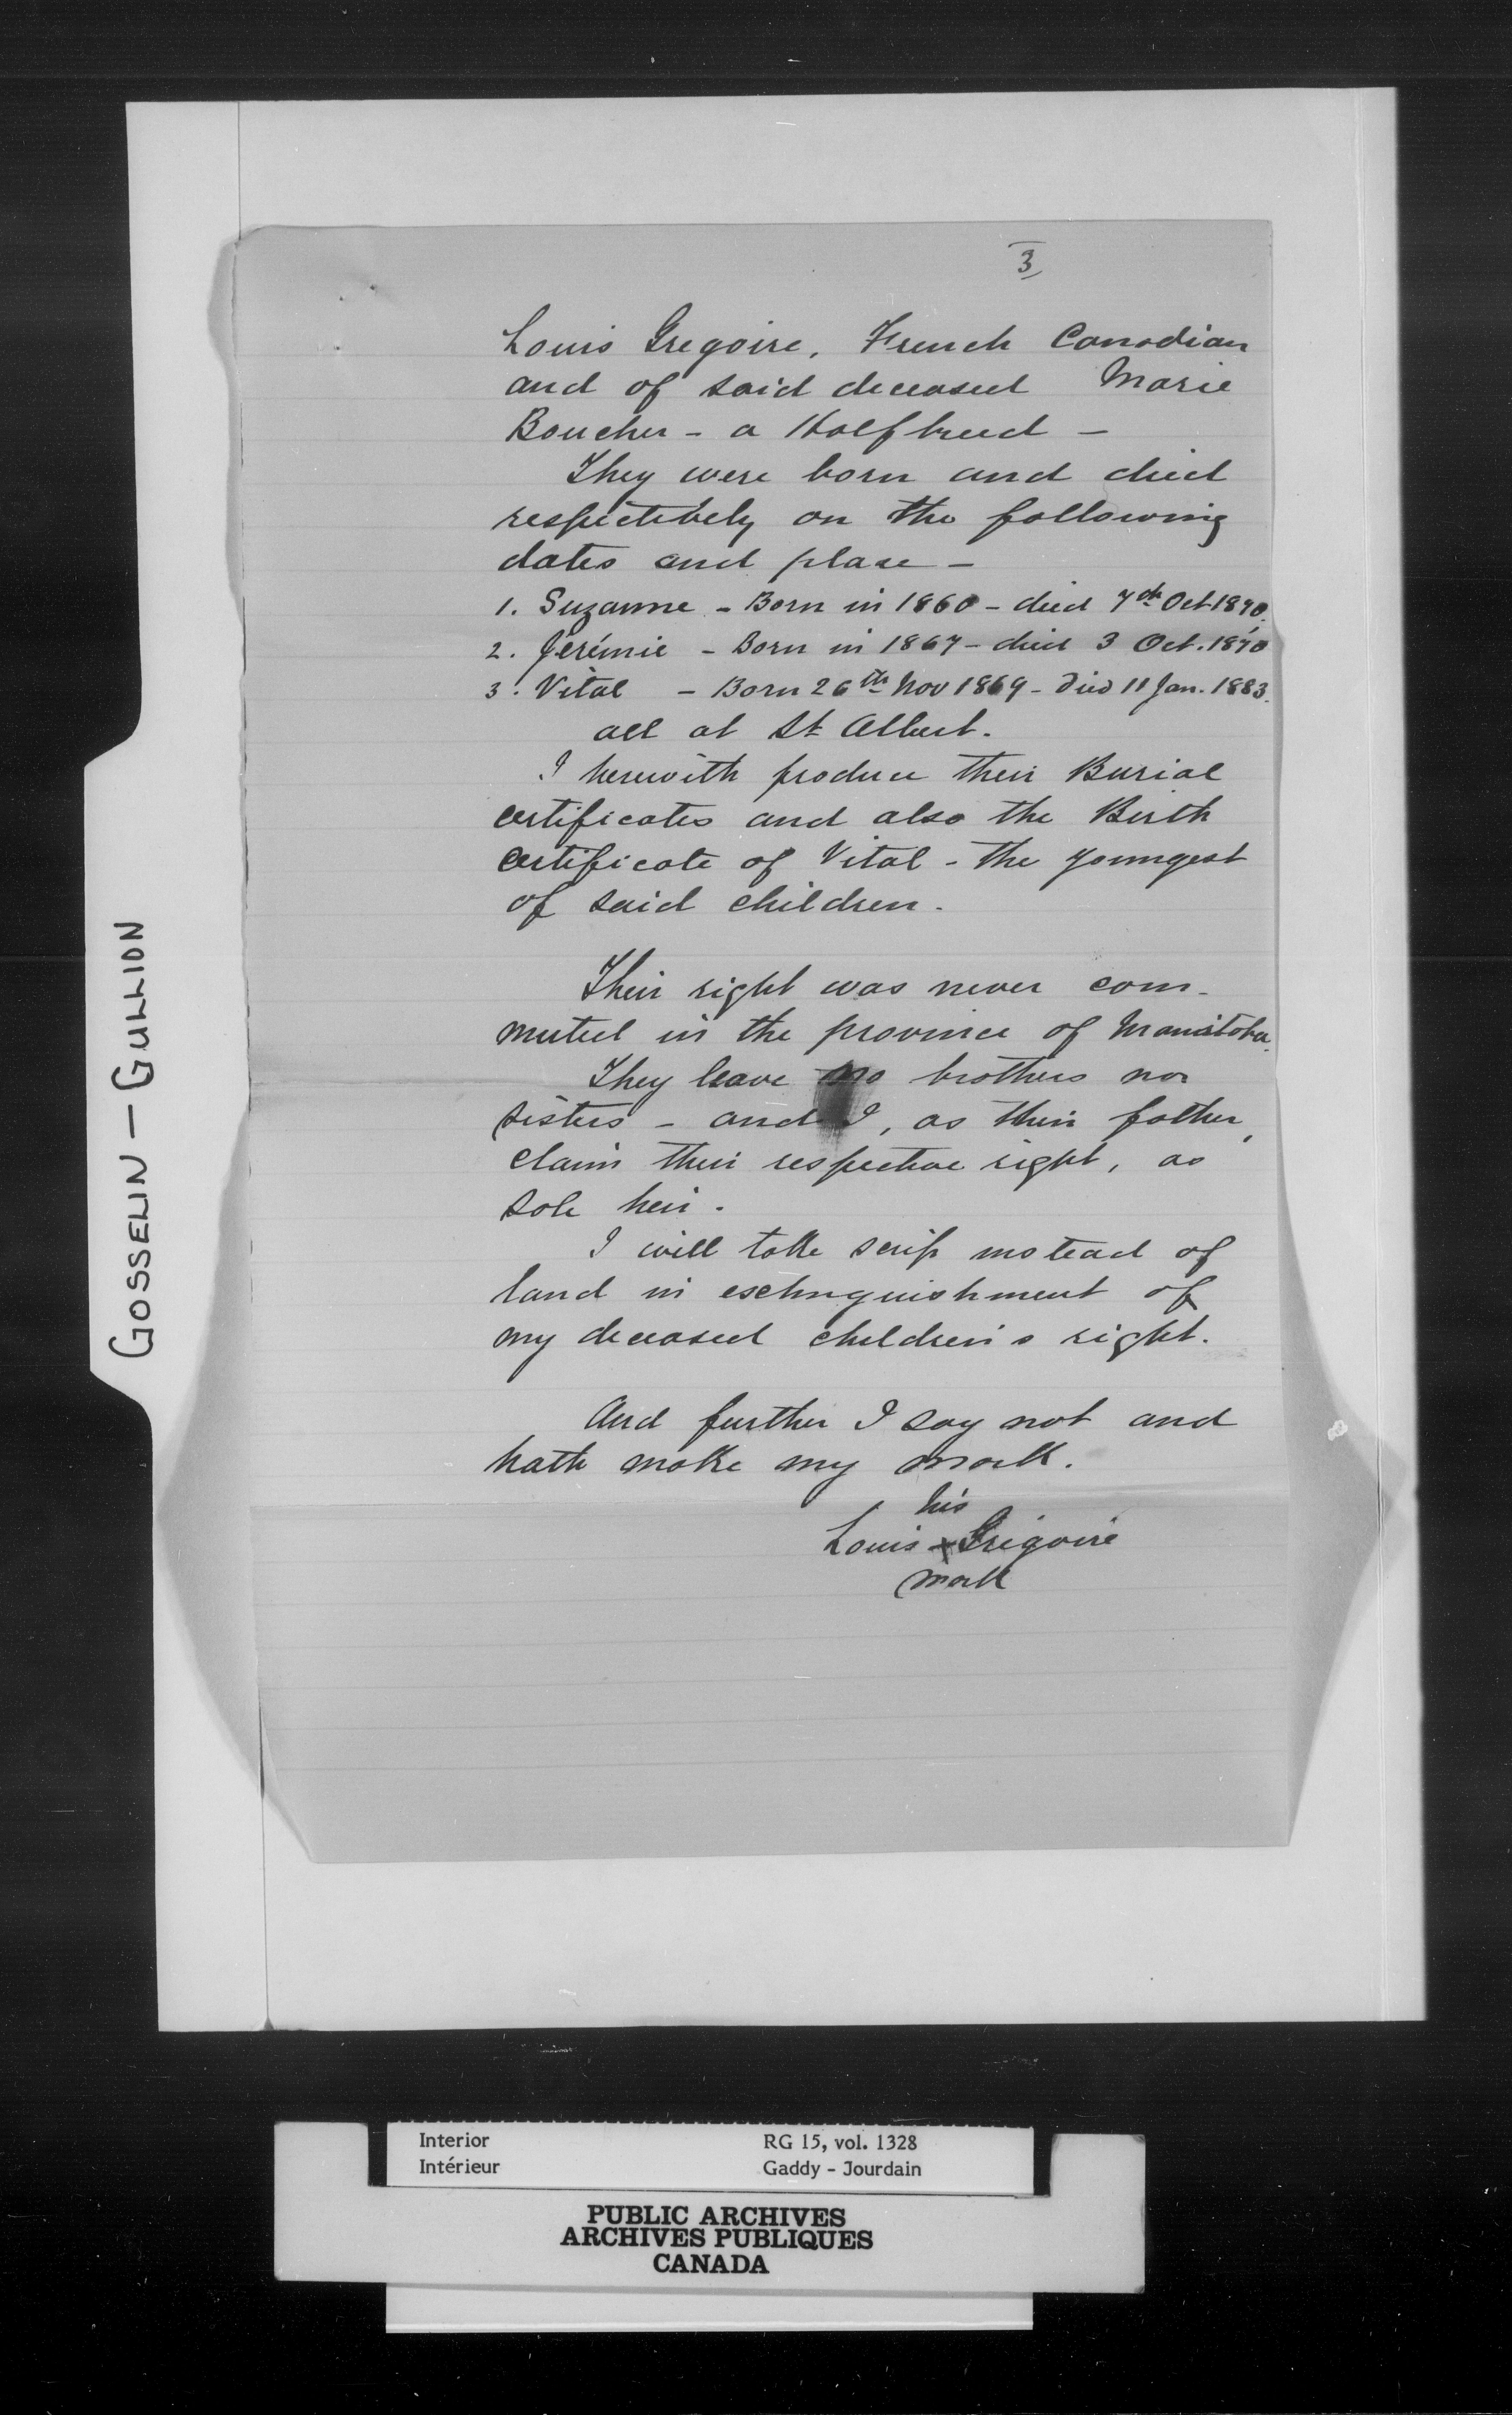 3
Louis Gregoire, French Canadian
and of said deceased Marie
Boucher - a Halfbreed -
They were born and died
respectively on the following
dates and place -
1. Suzanne - Born in 1860 - died 7th Oct 1870.
2. Jérémie - Born in 1867 - died 3 Oct. 1870
3. Vital - Born 26th Nov 1869 - died 11 Jan. 1883.
all at St Albert.
I herewith produce their Burial
certificates and also the Birth
certificate of Vital - the youngest
of said children.
Their right was never com-
muted in the province of Manitoba.
They leave no brothers nor
sisters - and I, as their father,
claim their respective right, as
sole heir.
I will take scrip instead of
land in extinguishment of
my deceased children's right.
And further I say not and
hath make my mark.
his
Louis x Grégoire
mark
GOSSELIN - GULLION
Interior RG 15, vol. 1328
Intérieur Gaddy - Jourdain
PUBLIC ARCHIVES
ARCHIVES PUBLIQUES
CANADA